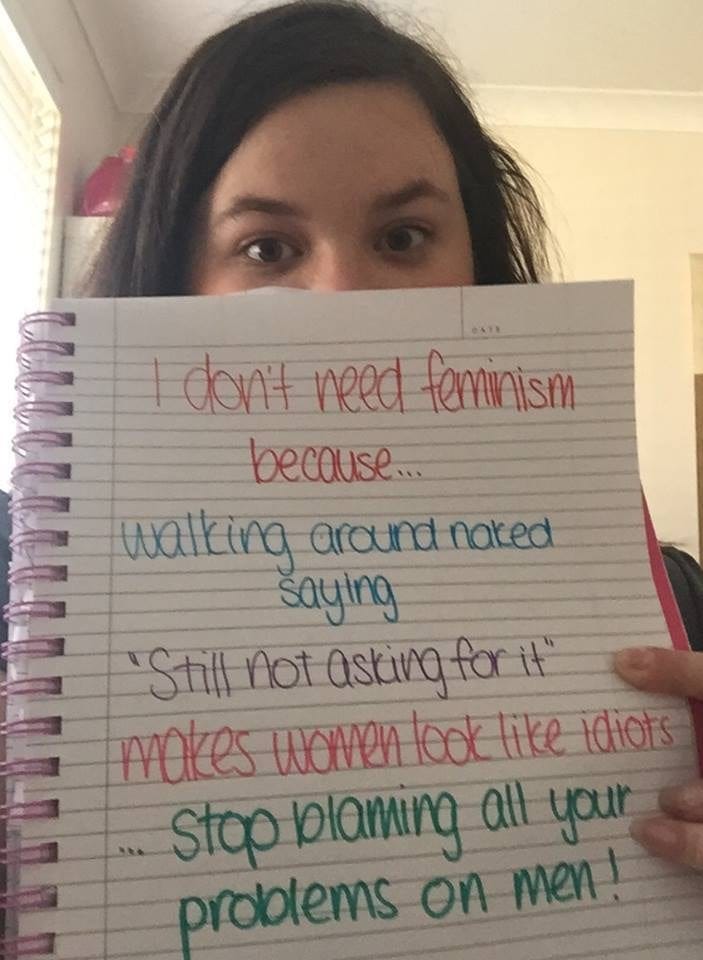 DATE
I don't need feminism
because...
walking around naked
saying
"Still not asking for it"
makes women look like idiots
... Stop blaming all your
problems on men!